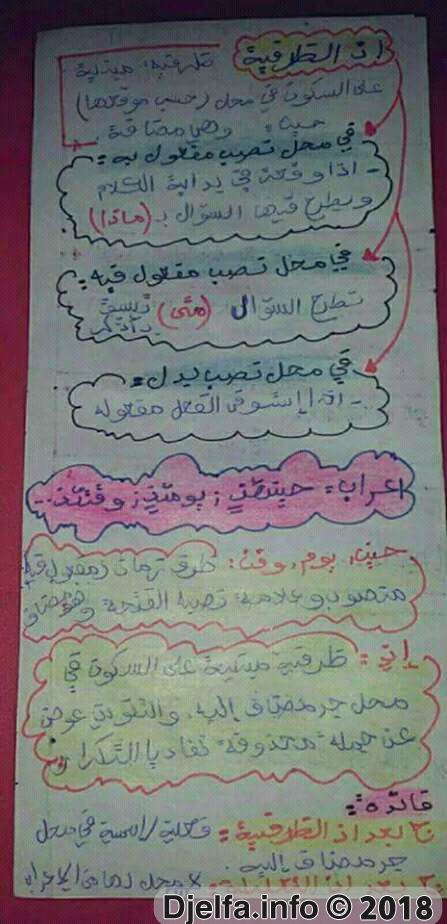 إذ الظرفية
ظرفية: مبنية
على السكون في محل (حسب موقعها)
وهي مضافة
في محل نصب مفعول به:
- اذا وقعت في بداية الكلام
ويطرح فيها السؤال بـ (ماذا)
في محل نصب مفعول فيه:
تطرح السؤال (متى)
في محل نصب بدل:
- اذا إستوفى الفعل مفعوله
اعراب: حينئذٍ، يومئذٍ، وقتئذ...
حين، يوم، وقت: ظرف زمان (مفعول فيه
منصوب وعلامة نصبه الفتحة وهو مضاف
إذٍ: ظرفية مبنية على السكون في
محل جر مضاف إليه. والتنوين عوض
عن جملة محذوفة تفاديا للتكرار
فائدة:
ج بعد اذ الظرفية: فعلية/اسمية في محل
جر مضاف إليه
لا محل لها من الإعراب
Djelfa.info © 2018